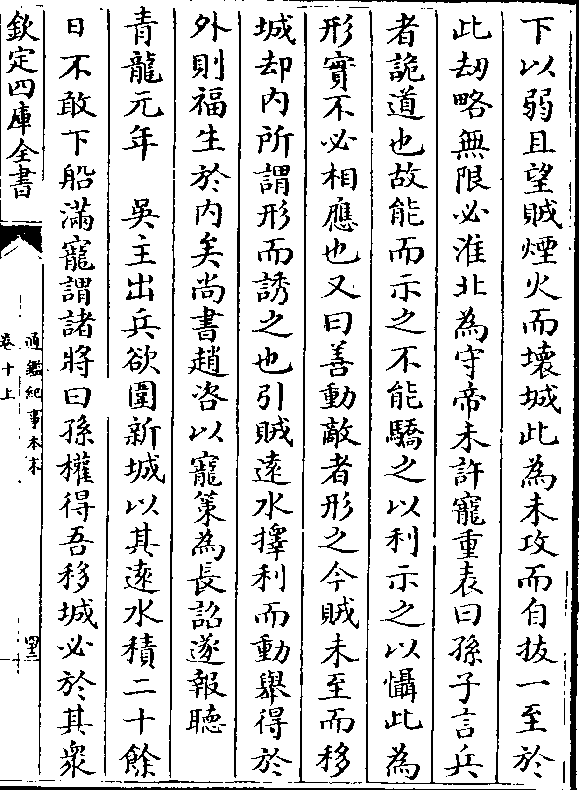 下以弱且望賊煙火而壊城此為未攻而自拔一至於
此刼略無限必淮北為守帝未許寵重表曰孫子言兵
者詭道也故能而示之不能驕之以利示之以懾此為
形實不必相應也又曰善動敵者形之今賊未至而移
城却内所謂形而誘之也引賊逺水擇利而動舉得於
外則福生於内矣尚書趙咨以寵策為長詔遂報聽
青龍元年　吳主出兵欲圍新城以其逺水積二十餘
日不敢下船滿寵謂諸將曰孫權得吾移城必於其衆
欽定四庫全書
通鑑紀事本末
卷十上
四十三